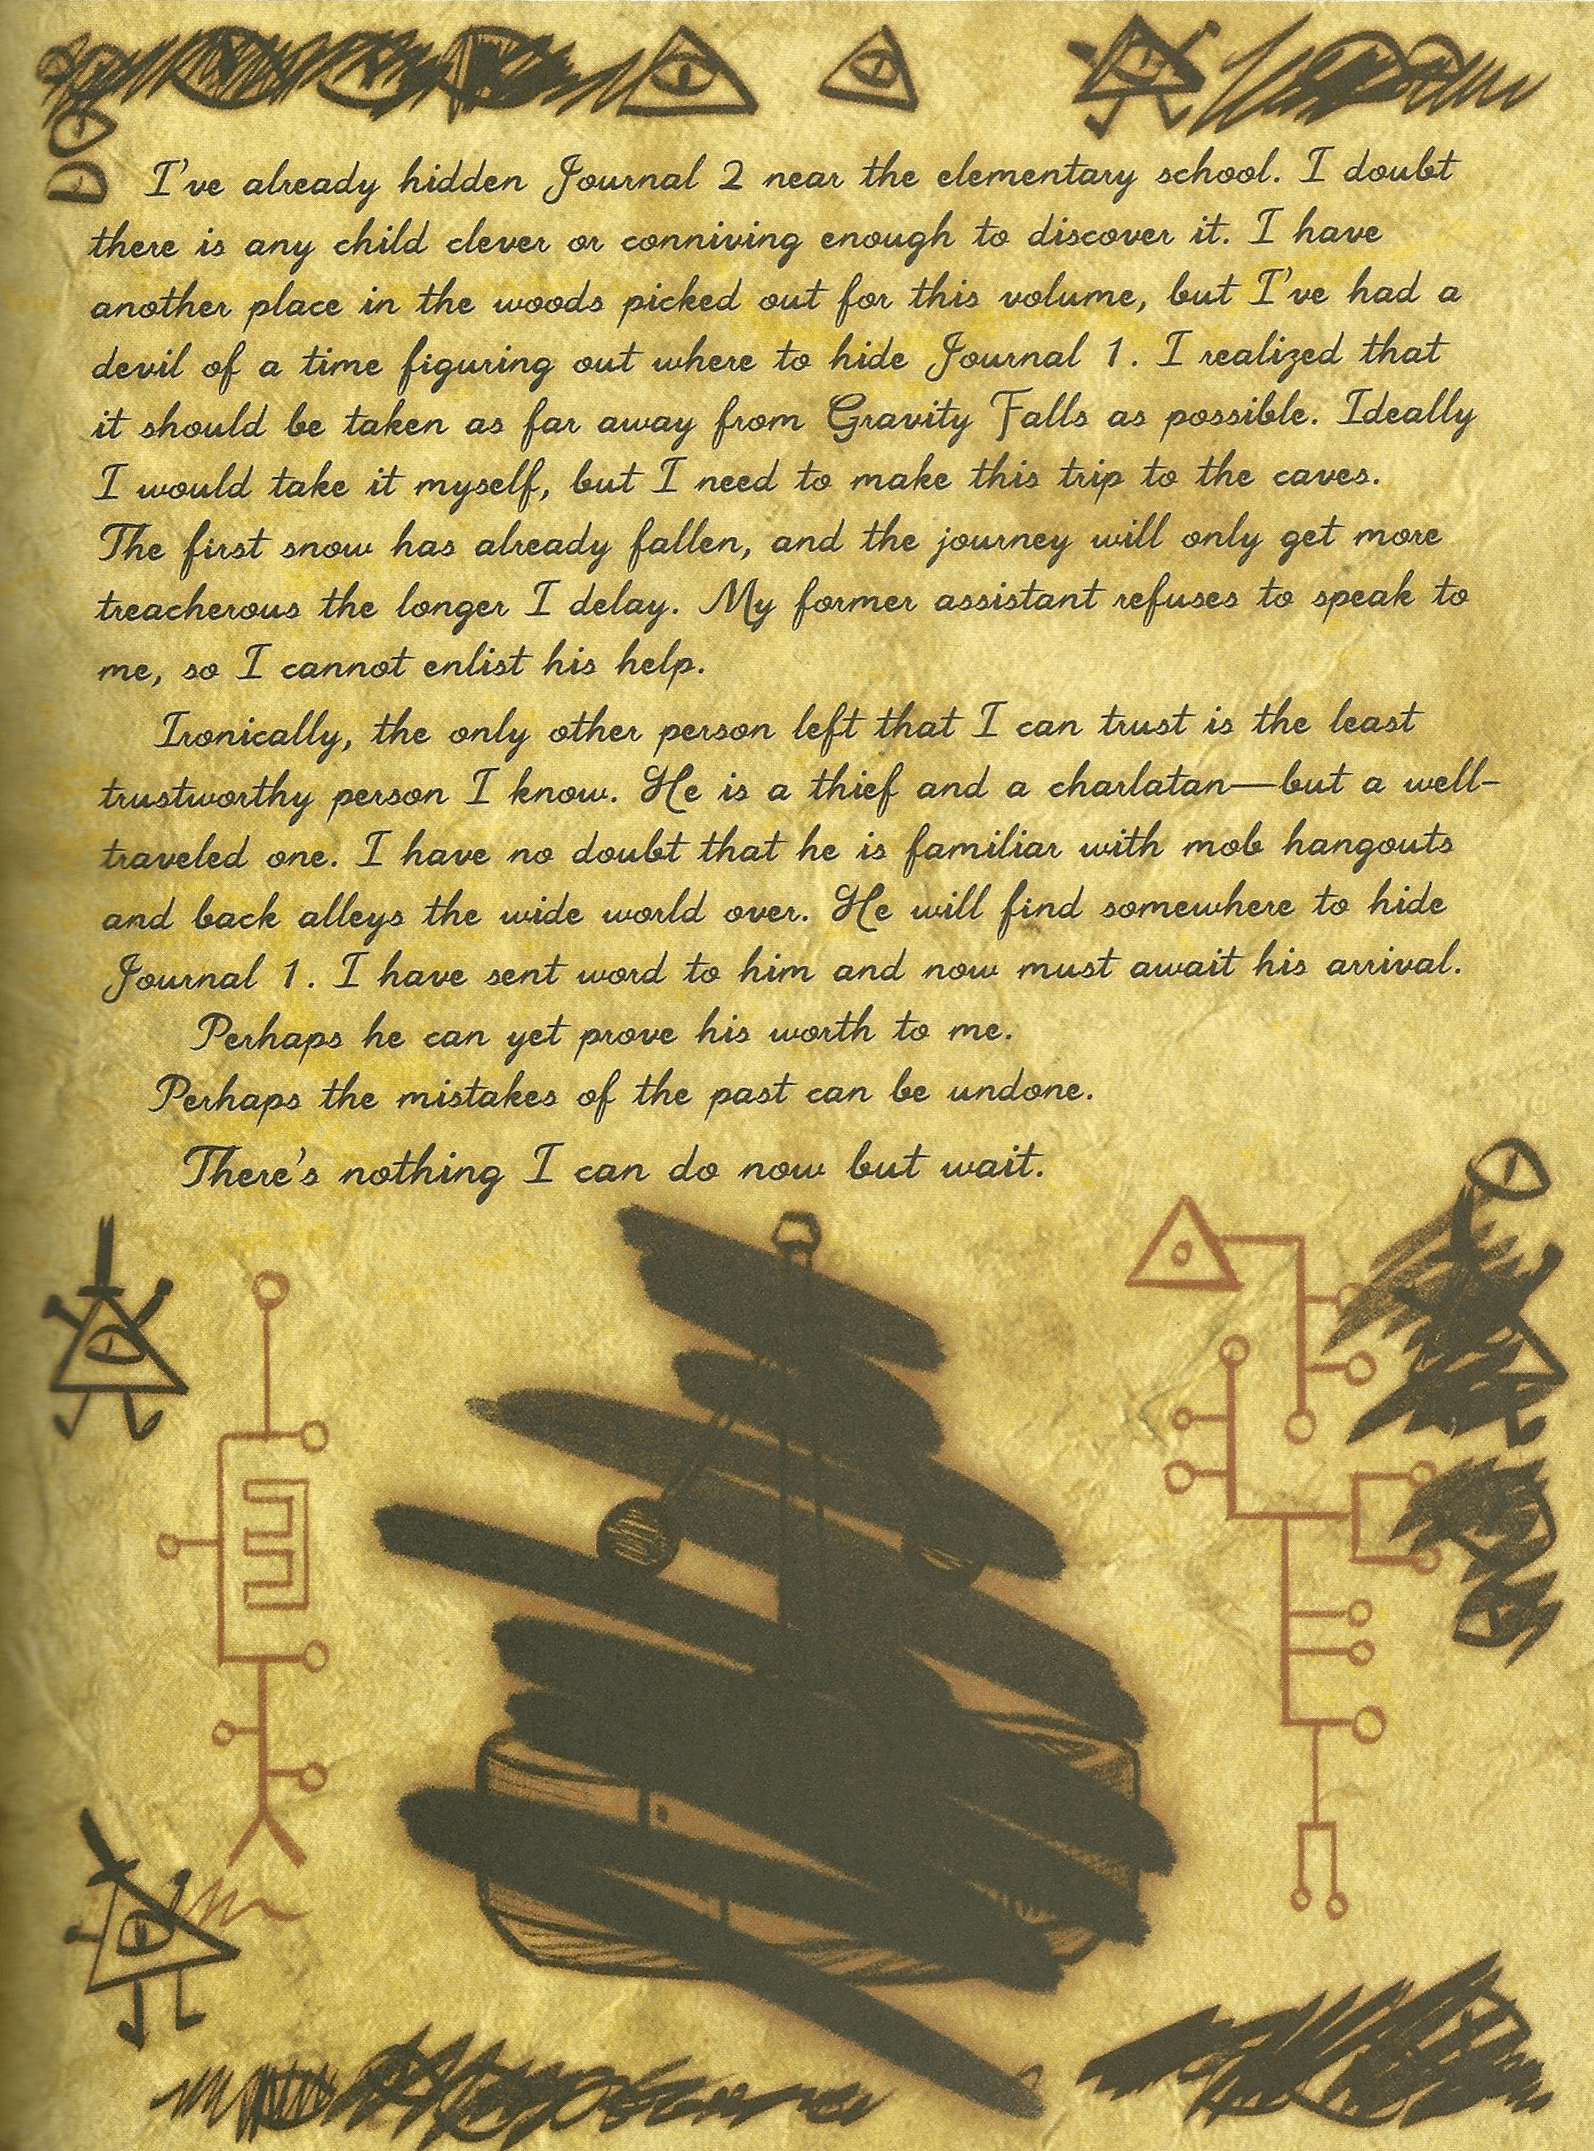 I've already hidden Journal 2 near the elementary school. I doubt
there is any child clever or conniving enough to discover it. I have
another place in the woods picked out for this volume, but I've had a
devil of a time figuring out where to hide Journal 1. I realized that
it should be taken as far away from Gravity Falls as possible. Ideally
I would take it myself, but I need to make this trip to the caves.
The first snow has already fallen, and the journey will only get more
treacherous the longer I delay. My former assistant refuses to speak to
me, so I cannot enlist his help.
Ironically, the only other person left that I can trust is the least
trustworthy person I know. He is a thief and a charlatan—but a well-
traveled one. I have no doubt that he is familiar with mob hangouts
and back alleys the wide world over. He will find somewhere to hide
Journal 1. I have sent word to him and now must await his arrival.
Perhaps he can yet prove his worth to me.
Perhaps the mistakes of the past can be undone.
There's nothing I can do now but wait.